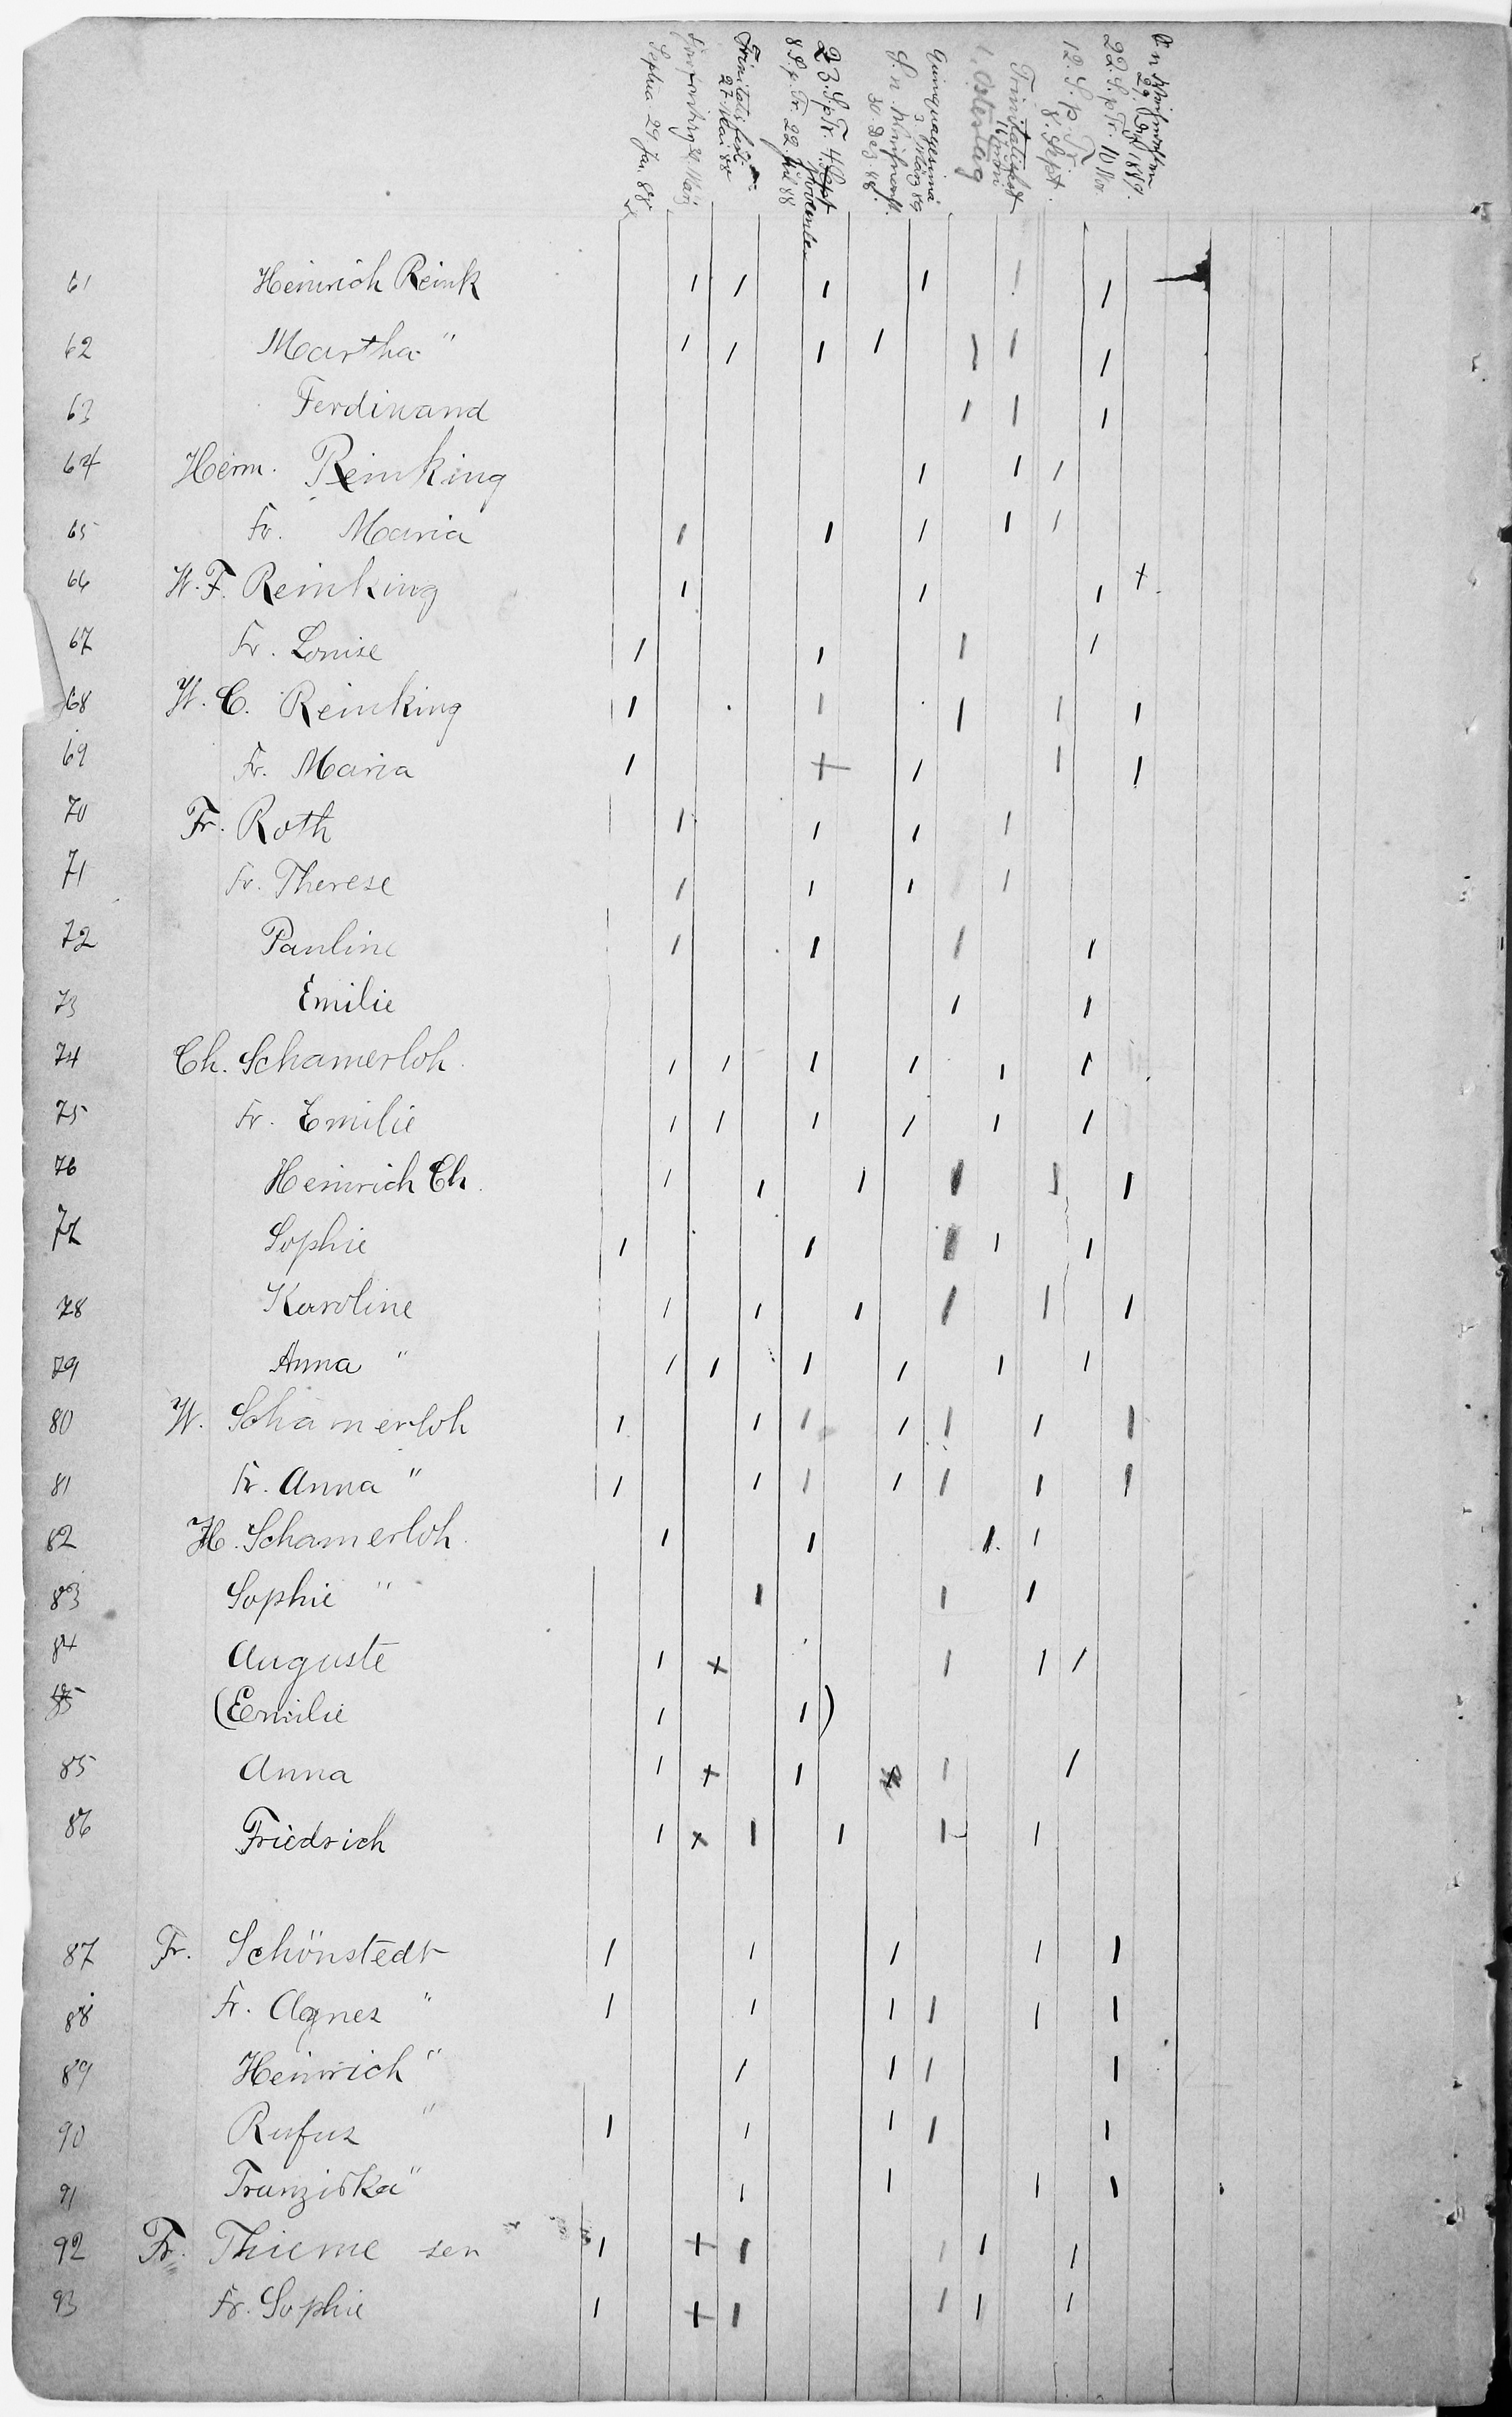 29 Jan. 88
Trinitatisfest
27 Mai 88
8 S. p. Tr. 22. Juli 88
23. S p Tr. 4. Sept
November
S. n. Weihnacht.
30. Dez. 88
Quinquagesima
3 März 89
1. Ostertag
Trinitatisfest
16 Juni
12. S. p. Tr.
8. Sept.
22. S. p Tr. 10 Nov.
S n Weihnachten
29. Dez 1889.
61 Heinrich Reink
62 Martha "
63 Ferdinand
64 Herm. Reinking
65 Fr. Maria
66 W. F. Reinking
67 Fr. Louise
68 W. C. Reinking
69 Fr. Maria
70 Fr. Roth
71 Fr. Therese
72 Pauline
73 Emilie
74 Ch. Schamerloh.
75 Fr. Emilie
76 Heinrich Ch.
77 Sophie
78 Karoline
79 Anna "
80 W. Schamerloh
81 Fr. Anna "
82 H. Schamerloh.
83 Sophie "
84 Auguste
85 (Emilie )
85 Anna
86 Friedrich
87 Fr. Schönstedt
88 Fr. Agnes "
89 Heinrich "
90 Rufus "
91 Franziska "
92 Fr. Thieme sen
93 Fr. Sophie